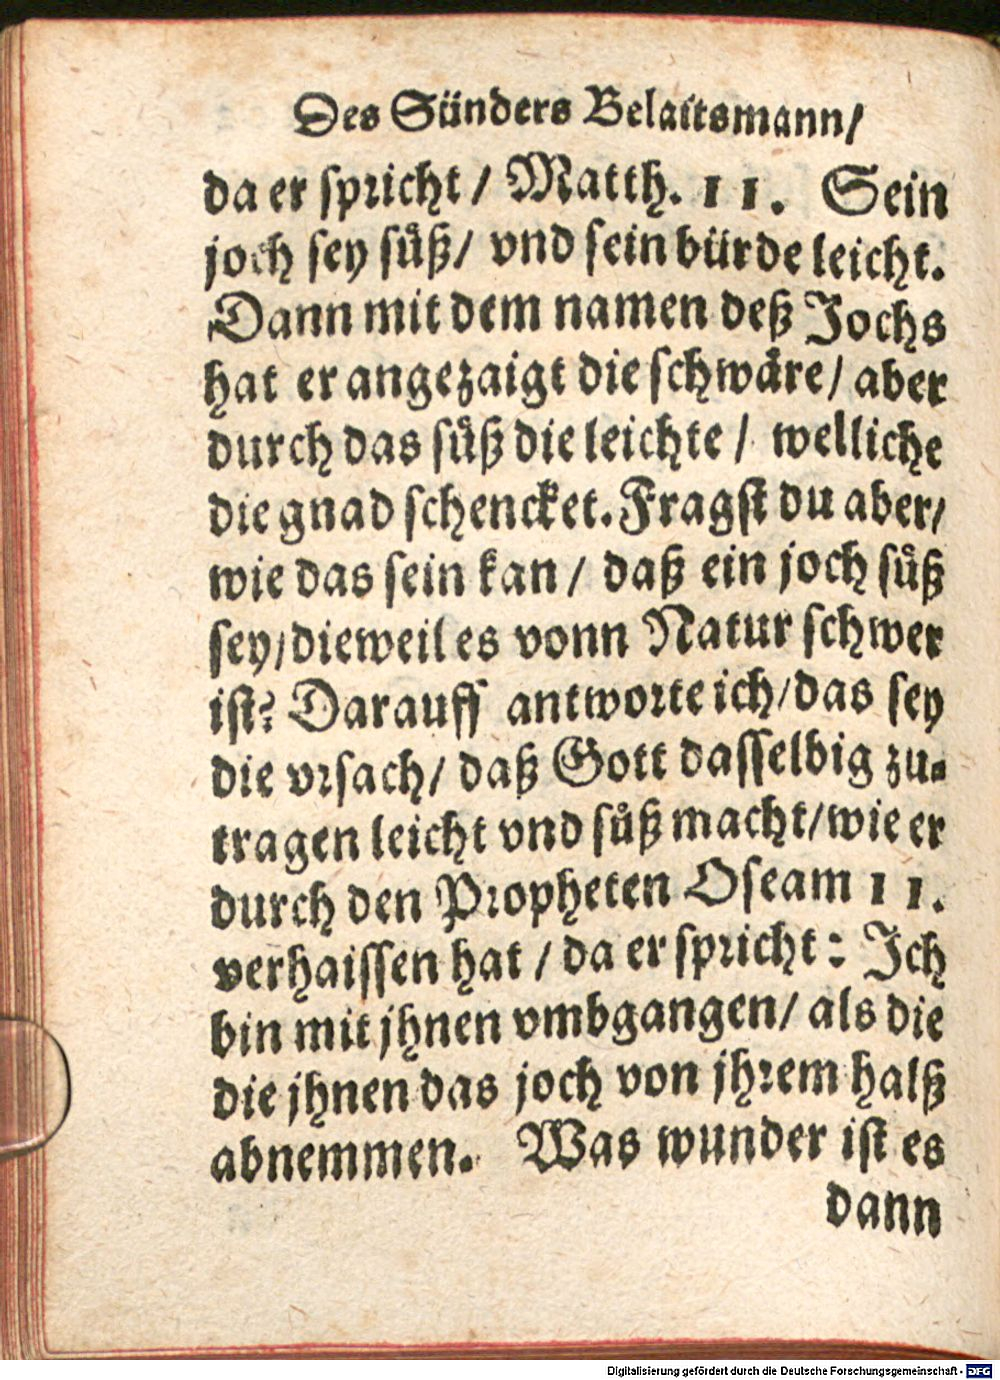 Des Sünders Belaitsmann/
da er ſpricht / Matth. 11. Sein
joch ſey ſuͤß/ vnd ſein bürde leicht.
Dann mit dem namen deß Jochs
hat er angezaigt die ſchwaͤre/ aber
durch das ſuͤß die leichte / welliche
die gnad ſchencket. Fragſt du aber/
wie das ſein kan / daß ein joch ſuͤß
ſey/dieweil es vonn Natur ſchwer
iſt? Darauff antworte ich/das ſey
die vrſach/ daß Gott daſſelbig zu-
tragen leicht vnd ſuͤß macht/wie er
durch den Propheten Oſeam 11.
verhaiſſen hat / da er ſpricht: Ich
bin mit jhnen vmbgangen/ als die
die jhnen das joch von jhrem halß
abnemmen. Was wunder iſt es
dann
Digitalisierung gefördert durch die Deutsche Forschungsgemeinschaft - DFG